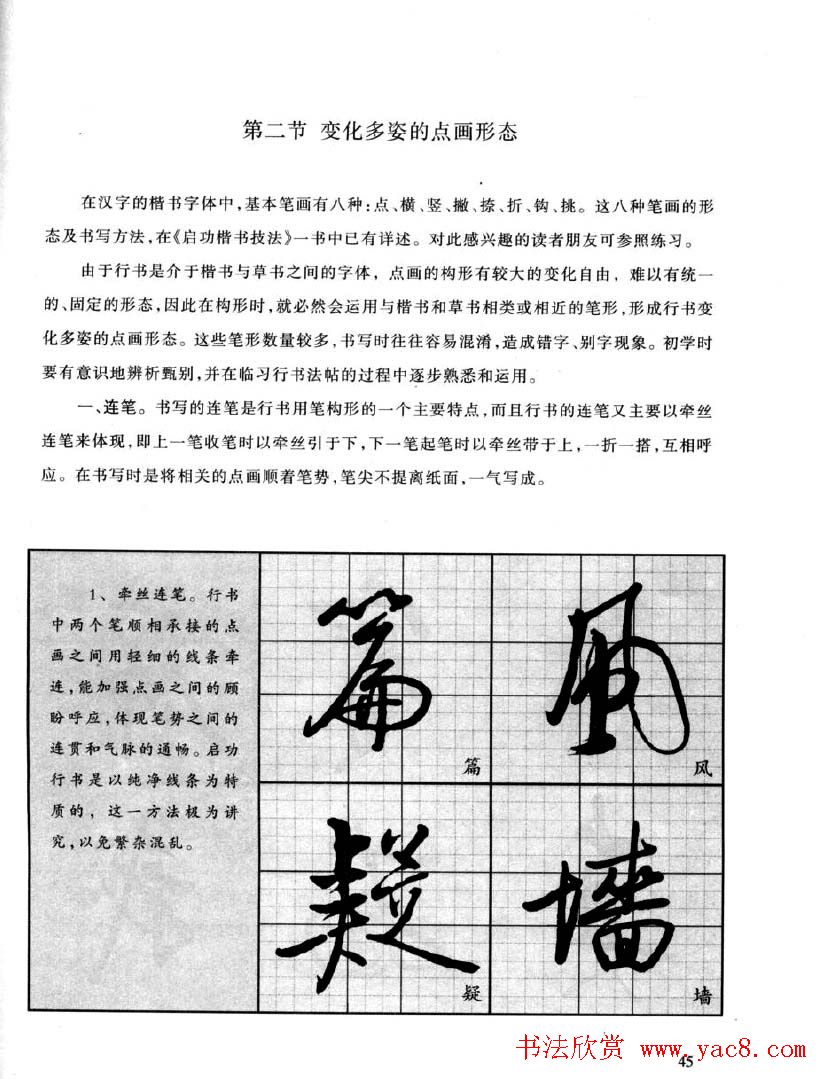 第二节 变化多姿的点画形态
在汉字的楷书字体中,基本笔画有八种:点、横、竖、撇、捺、折、钩、挑。这八种笔画的形
态及书写方法,在《启功楷书技法》一书中已有详述。对此感兴趣的读者朋友可参照练习。
由于行书是介于楷书与草书之间的字体，点画的构形有较大的变化自由，难以有统一
的、固定的形态,因此在构形时,就必然会运用与楷书和草书相类或相近的笔形,形成行书变
化多姿的点画形态。这些笔形数量较多,书写时往往容易混淆,造成错字、别字现象。初学时
要有意识地辨析甄别,并在临习行书法帖的过程中逐步熟悉和运用。
一、连笔。书写的连笔是行书用笔构形的一个主要特点,而且行书的连笔又主要以牵丝
连笔来体现,即上一笔收笔时以牵丝引于下,下一笔起笔时以牵丝带于上,一折一搭,互相呼
应。在书写时是将相关的点画顺着笔势,笔尖不提离纸面,一气写成。
1、牵丝连笔。行书
中两个笔顺相承接的点
画之间用轻细的线条牵
连,能加强点画之间的顾
盼呼应,体现笔势之间的
连贯和气脉的通畅。启功
行书是以纯净线条为特
质的，这一方法极为讲
究,以免繁杂混乱。
篇
篇
風
风
疑
疑
墙
墙
书法欣赏 www.yac8.com
45